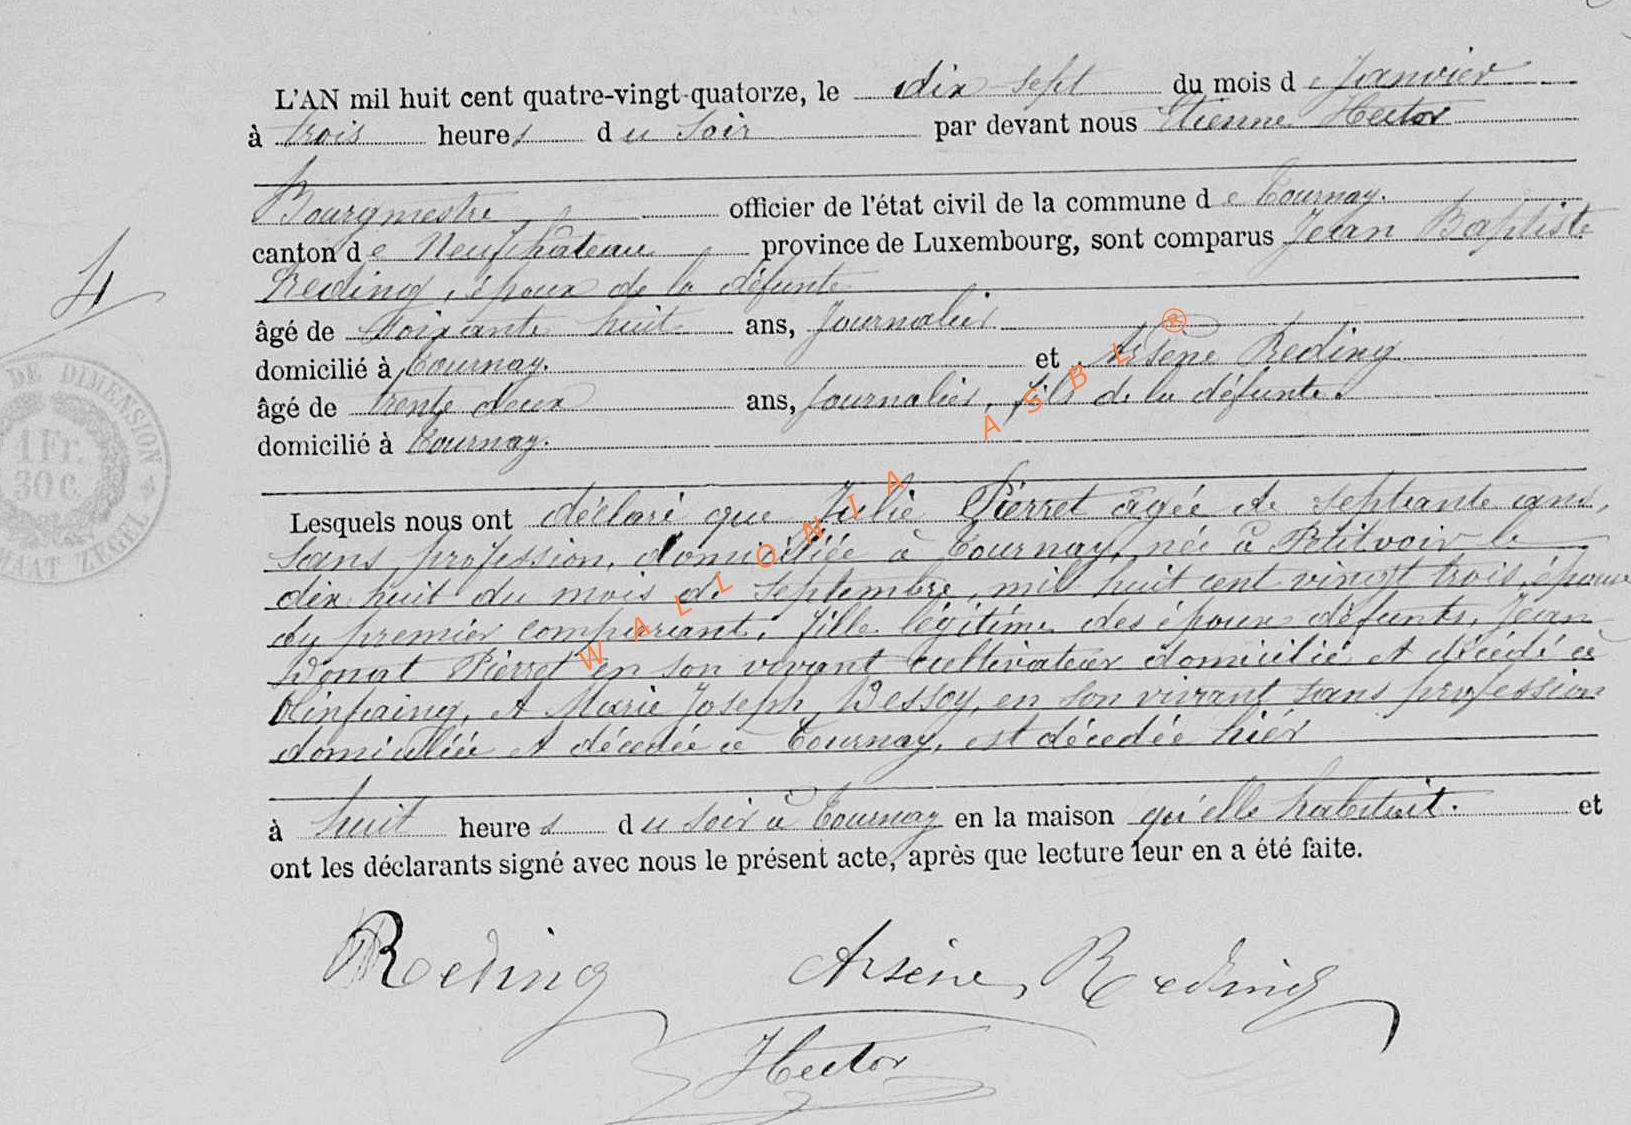 L'AN mil huit cent quatre-vingt-quatorze, le dix sept du mois de Janvier
à trois heures du soir par devant nous Etienne Hector
Bourgmestre officier de l'état civil de la commune de Tournay.
canton de Neufchâteau province de Luxembourg, sont comparus Jean Baptiste
Reding, époux de la défunte
âgé de soixante huit ans, Journalier
domicilié à Tournay. et Arsène Reding
âgé de trente deux ans, Journalier, fils de la défunte
domicilié à Tournay.
4
DE DIMENSION
1 Fr.
30 C.
ZEGEL
WALLONIA ASBL ®
Lesquels nous ont déclaré que Julie Pierret agée de septante ans,
sans profession, domiciliée à Tournay, née à Petitvoir le
dix huit du mois de septembre, mil huit cent vingt trois, épouse
du premier comparant, fille légitime des époux défunts, Jean
Donat Pierret en son vivant cultivateur domicilié et décédé à
Offaing, et Marie Joseph Dessoy, en son vivant sans profession
domiciliée et décédée à Tournay, est décédée hier
à huit heures du soir à Tournay en la maison qu'elle habitait. et
ont les déclarants signé avec nous le présent acte, après que lecture leur en a été faite.
Reding Arsène Reding
Hector